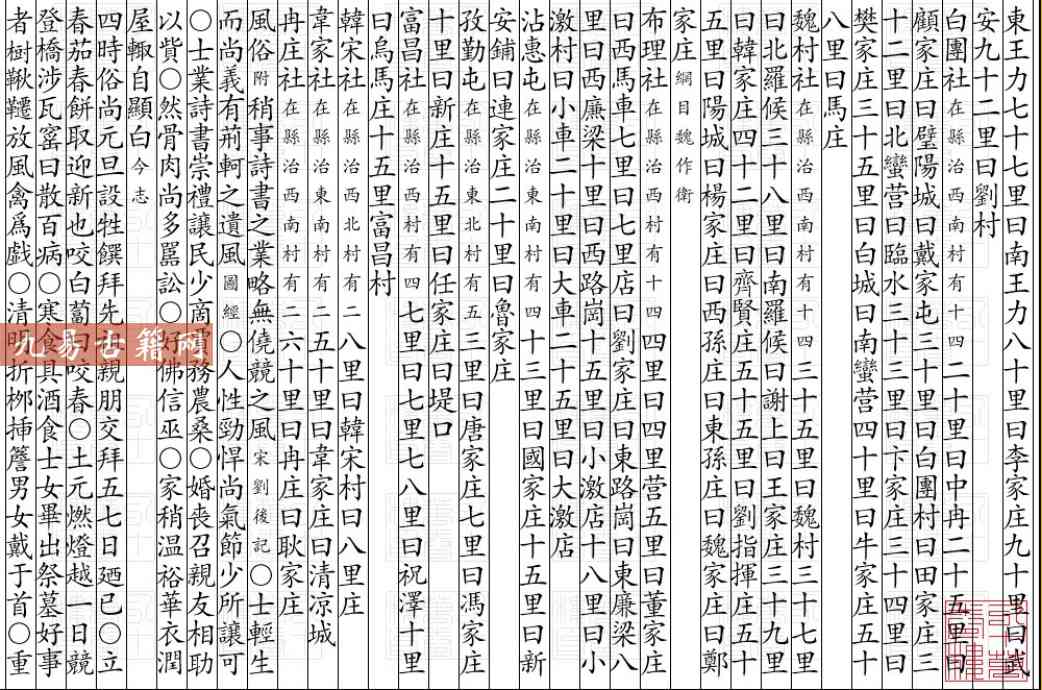 東王力七十七里曰南王力八十里曰李家庄九十里曰武
安九十二里曰劉村
白團社在縣治西南村有十四二十里曰中冉二十五里曰
顧家庄曰璧陽城曰戴家屯三十里曰白團村曰田家庄三
十二里曰北蠻营曰臨水三十三里曰卞家庄三十四里曰
樊家庄三十五里曰白城曰南蠻营四十里曰牛家庄五十
八里曰馬庄
魏村社在縣治西南村有十四三十五里曰魏村三十七里
曰北羅候三十八里曰南羅候曰謝上曰王家庄三十九里
曰韓家庄四十二里曰齊賢庄五十五里曰劉指揮庄五十
五里曰陽城曰楊家庄曰西孫庄曰東孫庄曰魏家庄曰鄭
家庄綱目魏作衛
布理社在縣治西村有十四四里曰四里营五里曰董家庄
曰西馬車七里曰七里店曰劉家庄曰東路崗曰東廉梁八
里曰西廉梁十里曰西路崗十五里曰小激店十八里曰小
激村曰小車二十里曰大車二十五里曰大激店
沾惠屯在縣治東南村有四十三里曰國家庄十五里曰新
安鋪曰連家庄二十里曰魯家庄
孜勤屯在縣治東北村有五三里曰唐家庄七里曰馮家庄
十里曰新庄十五里曰任家庄曰堤口
富昌社在縣治西村有四七里曰七里七八里曰祝澤十里
曰烏馬庄十五里富昌村
韓宋社在縣治西北村有二八里曰韓宋村曰八里庄
韋家社在縣治東南村有二五十里曰韋家庄曰清凉城
冉庄社在縣治西南村有二六十里曰冉庄曰耿家庄
風俗附稍事詩書之業略無僥競之風宋劉後記〇士輕生
而尚義有荊軻之遺風圖經〇人性勁悍尚氣節少所讓可
〇士業詩書崇禮讓民少商賈務農桑〇婚喪召親友相助
以貲〇然骨肉尚多嚚訟〇好佛信巫〇家稍溫裕華衣潤
屋輙自顯白今志
四時俗尚元旦設牲饌拜先親朋交拜五七日廼已〇立
春茄春餅取迎新也咬白蔔曰咬春〇土元燃燈越一日競
登橋涉瓦窰曰散百病〇寒食具酒食士女畢出祭墓好事
者樹鞦韆放風禽爲戲〇清明折栁揷簷男女戴于首〇重
九易古籍网